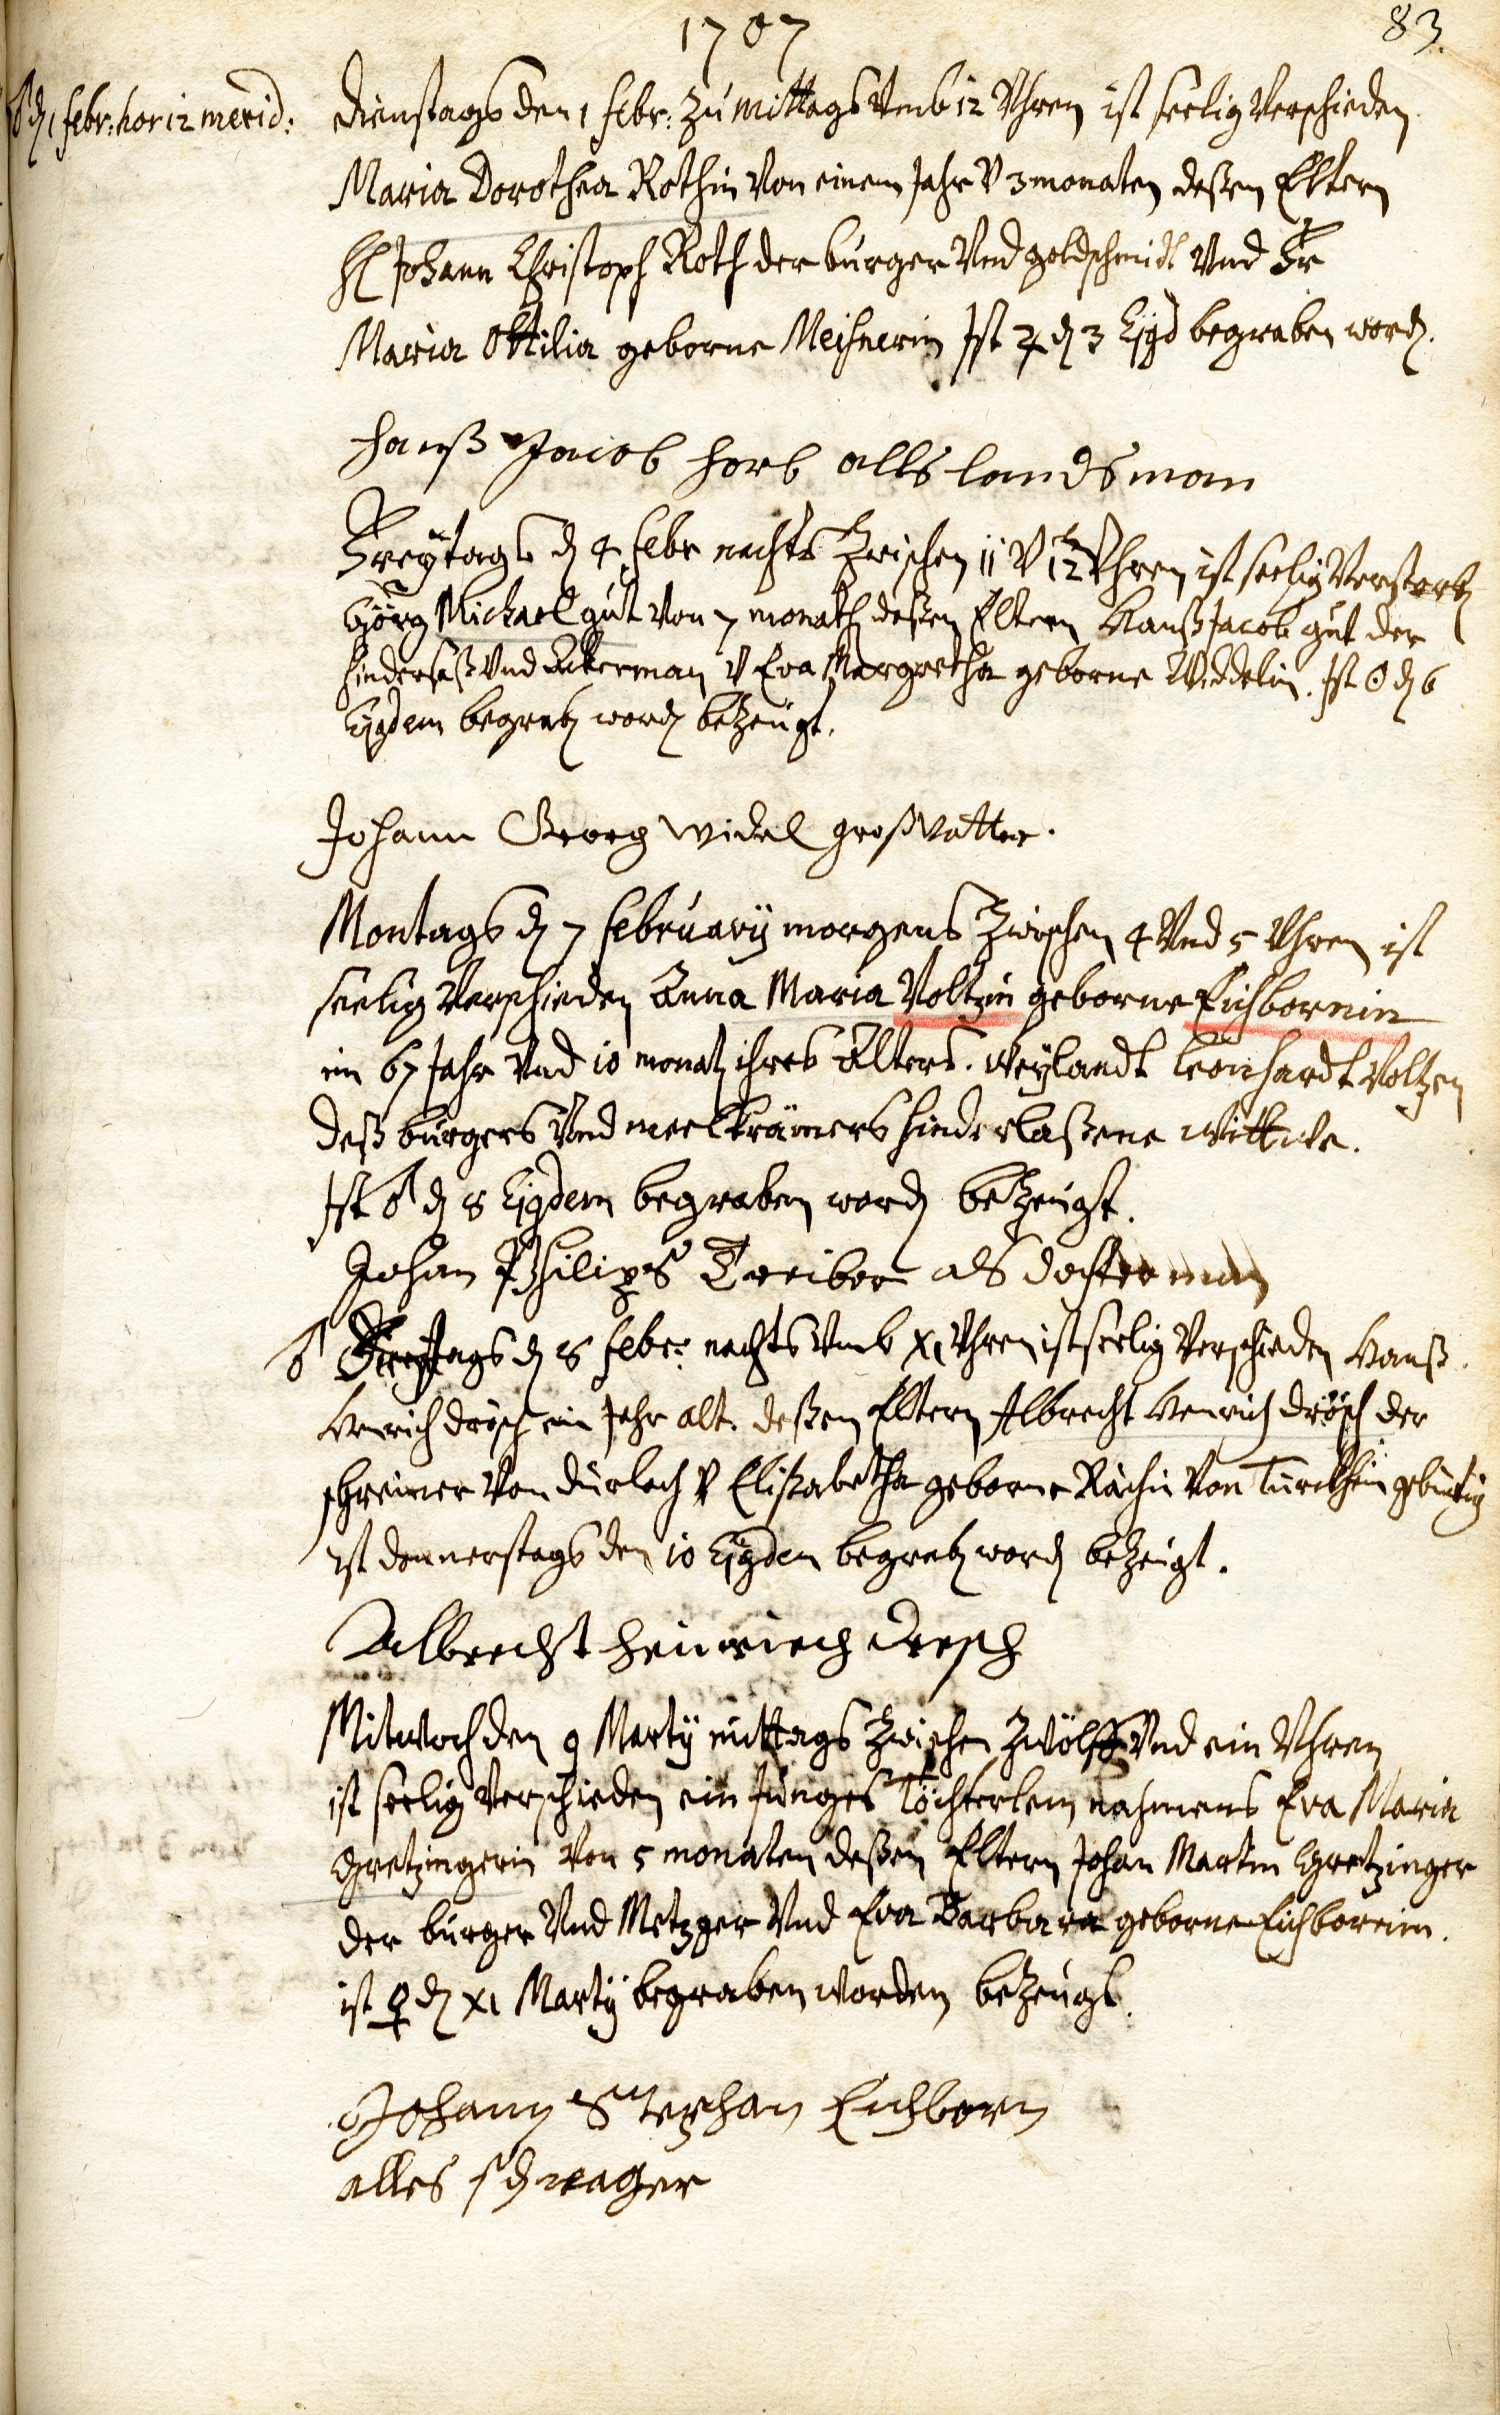 1707
83.
♂ d. 1 febr: hor 12 merid:
dienstags den 1 febr: zu mittags vmb 12 Vhren ist seelig verschieden
Maria Dorothea Rothin von einem Jahr v 3 monaten deßen Eltern
H Johann Christoph Roth der burger vnd goldschmidt vnd Fr
Maria Ottilia geborne Meisnerin Ist ♃ d 3 Ejgd begraben word.
Hanß Jacob Horb alls landsman
Freÿtags d 4 febr nachts zwischen 11 v 12 Vhren ist seelig verstorb
Görg Michael gut von 7 monath deßen Eltern Hanß Jacob gut der
hindersaß vnd Ackerman v Eva Margretha geborne Widdelin. Ist ☉ d 6
Ejgdem begrab word bezeugt.
Johann Georg Widel großvatter.
Montags d 7 februarÿ morgens zwischen 4 vnd 5 Vhren ist
seelig verschieden Anna Maria Voltzin geborne Eichbornin
im 67 Jahr vnd 10 monat ihres Alters. weylandt leonhardt Voltzen
deß burgers vnd meelkrämers hinderlaßene wittwe.
Ist ♂ d 8 Ejgdem begraben word bezeugt.
Johan Philips Treiber als dochterman
♂ tags d 8 febr: nachts vmb XI Vhren ist seelig verschieden Hanß
Henrich drösch ein Jahr alt. deßen Eltern Albrecht Henrich drösch der
schreiner von durlach v Elisabetha geborne von Türckhin gebürtig
ist donnerstags den 10 Ejgdem begrab word bezeigt.
Albrecht heinriech dresch
Mitwoch den 9 Martÿ mittags zwischen zwölff vnd ein Vhren
ist seelig verschieden ein Junges Töchterlein nahmens Eva Maria
Gretzingerin von 5 monaten deßen Eltern Johan Martin Gretzinger
der burger vnd Metzger vnd Eva Barbara geborne Eichbornin.
ist ♀ d XI Martÿ begraben worden bezeugt.
Johann Stephan Eichborn
alles schwager